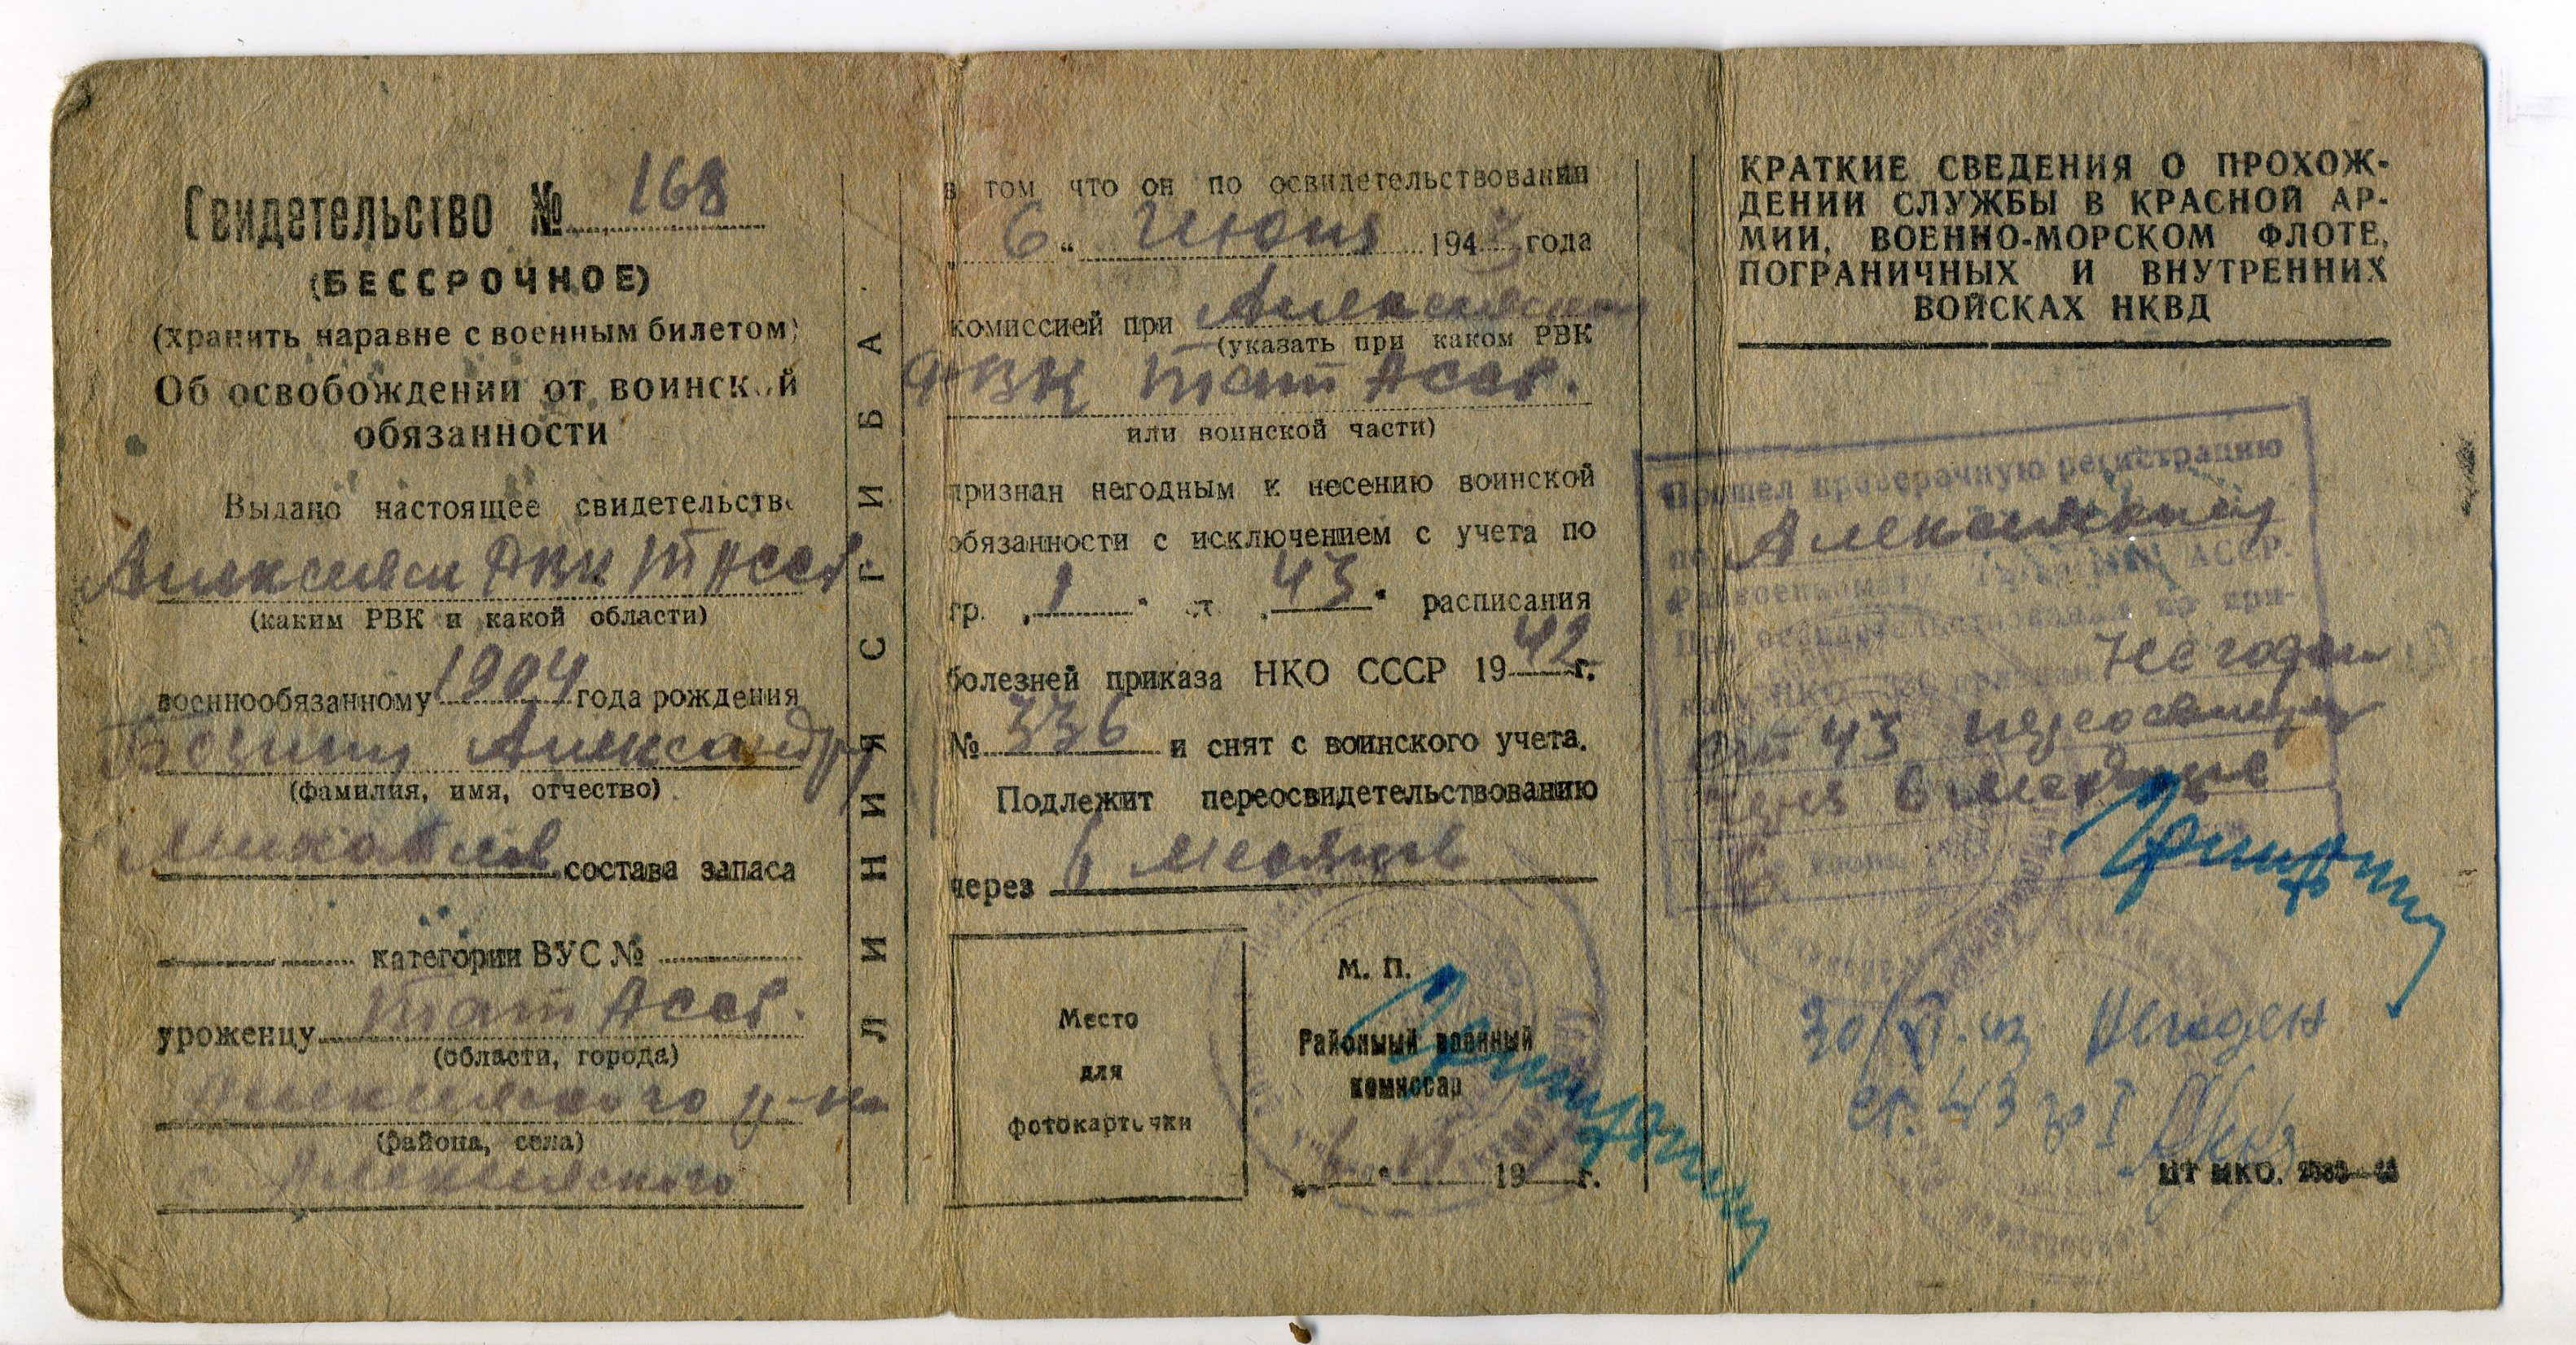 Свидетельство № 168
(БЕССРОЧНОЕ)
(хранить наравне с военным билетом)
Об освобождении от воинской
обязанности
Выдано настоящее свидетельство
РВК ТАССР
(каким РВК и какой области)
военнообязанному 1904 года рождения
Александру
(фамилия, имя, отчество)
состава запаса
категории ВУС №
уроженцу Тат АССР.
(области, города)
Алексеевского р-на
(района, села)
с Алексеевского
ЛИНИЯ СГИБА
в том что он по освидетельствовании
„ 6 “ Июня 194 года
комиссией при Алексеевском
(указать при каком РВК
РВК Тат АССР.
или воинской части)
признан негодным к несению воинской
обязанности с исключением с учета по
гр. „ 1 “ ст. „ 43 “ расписания
болезней приказа НКО СССР 1942 г.
№ 336 и снят с воинского учета.
Подлежит переосвидетельствованию
через 6 месяцев
Место
для
фотокарточки
М. П.
Районный военный
комиссар
„ 6 “ VI 19 г.
КРАТКИЕ СВЕДЕНИЯ О ПРОХОЖ-
ДЕНИИ СЛУЖБЫ В КРАСНОЙ АР-
МИИ, ВОЕННО-МОРСКОМ ФЛОТЕ,
ПОГРАНИЧНЫХ И ВНУТРЕННИХ
ВОЙСКАХ НКВД
Прошел проверочную регистрацию
по Алексеевскому
Райвоенкомату АССР.
При освидетельствовании по при-
казу НКО 336 признан Негоден
ст 43 переосвидет
через 6 месяцев
30/XI-43 Негоден
ст. 43 гр I
ЦТ НКО.